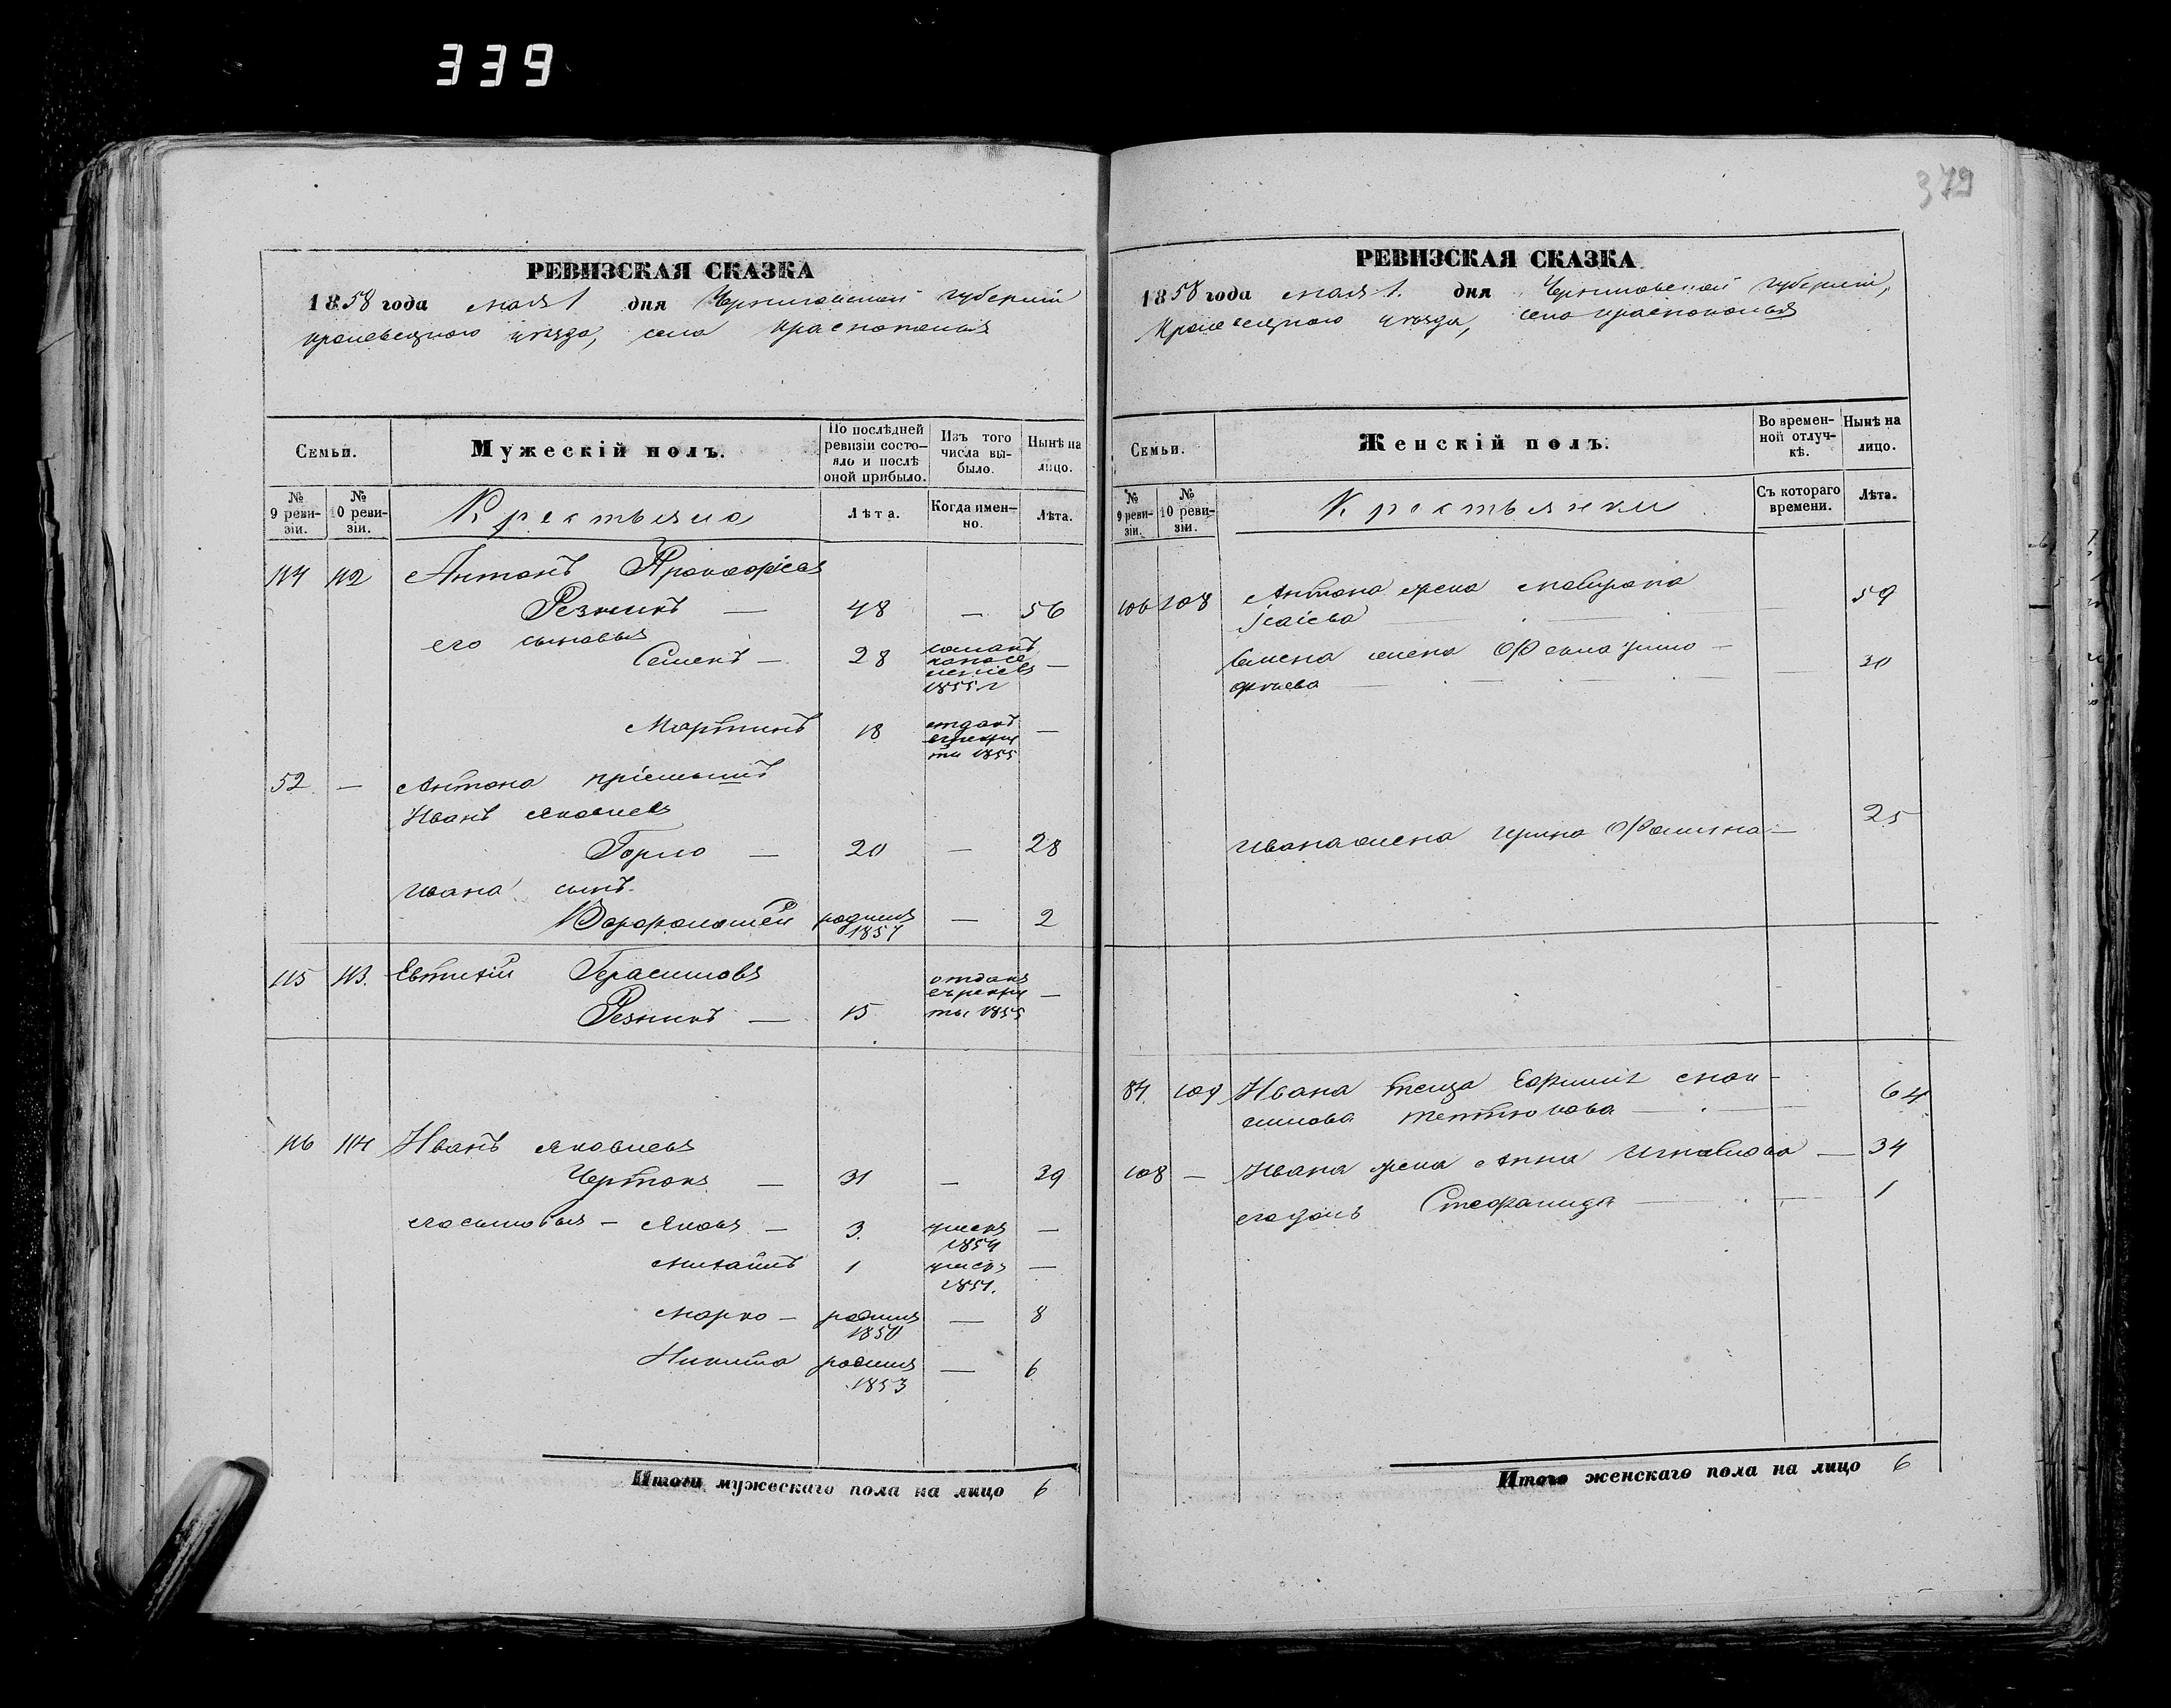 339
379
РЕВИЗСКАЯ СКАЗКА
1858 года мая 1 дня Черниговской губерніи
кролевецкаго уѣзда, села Краснополья
Семьи.
Мужескій полъ.
По послѣдней ревизіи состояло и послѣ оной прибыло.
Изъ того числа выбыло.
Нынѣ на лицо.
№ 9 ревизіи.
№ 10 ревизіи.
Крестьяне
Лѣта.
Когда именно.
Лѣта.
114 112 Антонъ Прокофіевъ
Резникъ — 48 — 56
его сыновья
Семенъ — 28 —
1855 г
Мартинъ 18 отданъ —
в рекру
ты 1855
52 — Антона пріемышъ
Иванъ Яковлевъ
Горло — 20 — 28
Ивана сынъ
Варфоломей родился — 2
1857
115 113. Евтихій Герасимовъ отданъ
Резникъ — 15 в рекру —
ты 1855
116 114 Иванъ Яковлевъ
Чертокъ — 31 — 39
его сыновья — Яковъ — 3. умеръ —
1854
Михаилъ 1 умеръ —
1851.
Марко — родился — 8
1850
Никита родился — 6
1853
Итого мужескаго пола на лицо 6
РЕВИЗСКАЯ СКАЗКА
1858 года мая 1. дня Черниговской губерніи,
Кролевецкаго уѣзда, села Краснополья
Семьи.
Женскій полъ.
Во временной отлучкѣ.
Нынѣ на лицо.
№ 9 ревизіи.
№ 10 ревизіи.
Крестьянки
Съ котораго времени.
Лѣта.
106 108 Антона жена Матрона
Исаіева — — 59
Семена жена Фекла Тимо—
фіева — — 30
Ивана жена Ирина Фомина — 25
84. 109 Ивана теща Ефимія Мак—
симова — 64
108 — Ивана жена Анна Игнатова — 34
его дочь Стефанида — — 1
Итого женскаго пола на лицо 6